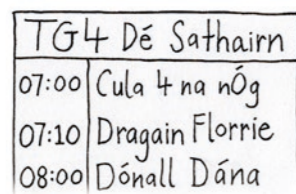 TG4 Dé Sathairn
07:00 Cula 4 na nÓg
07:10 Dragain Florrie
08:00 Dónall Dána